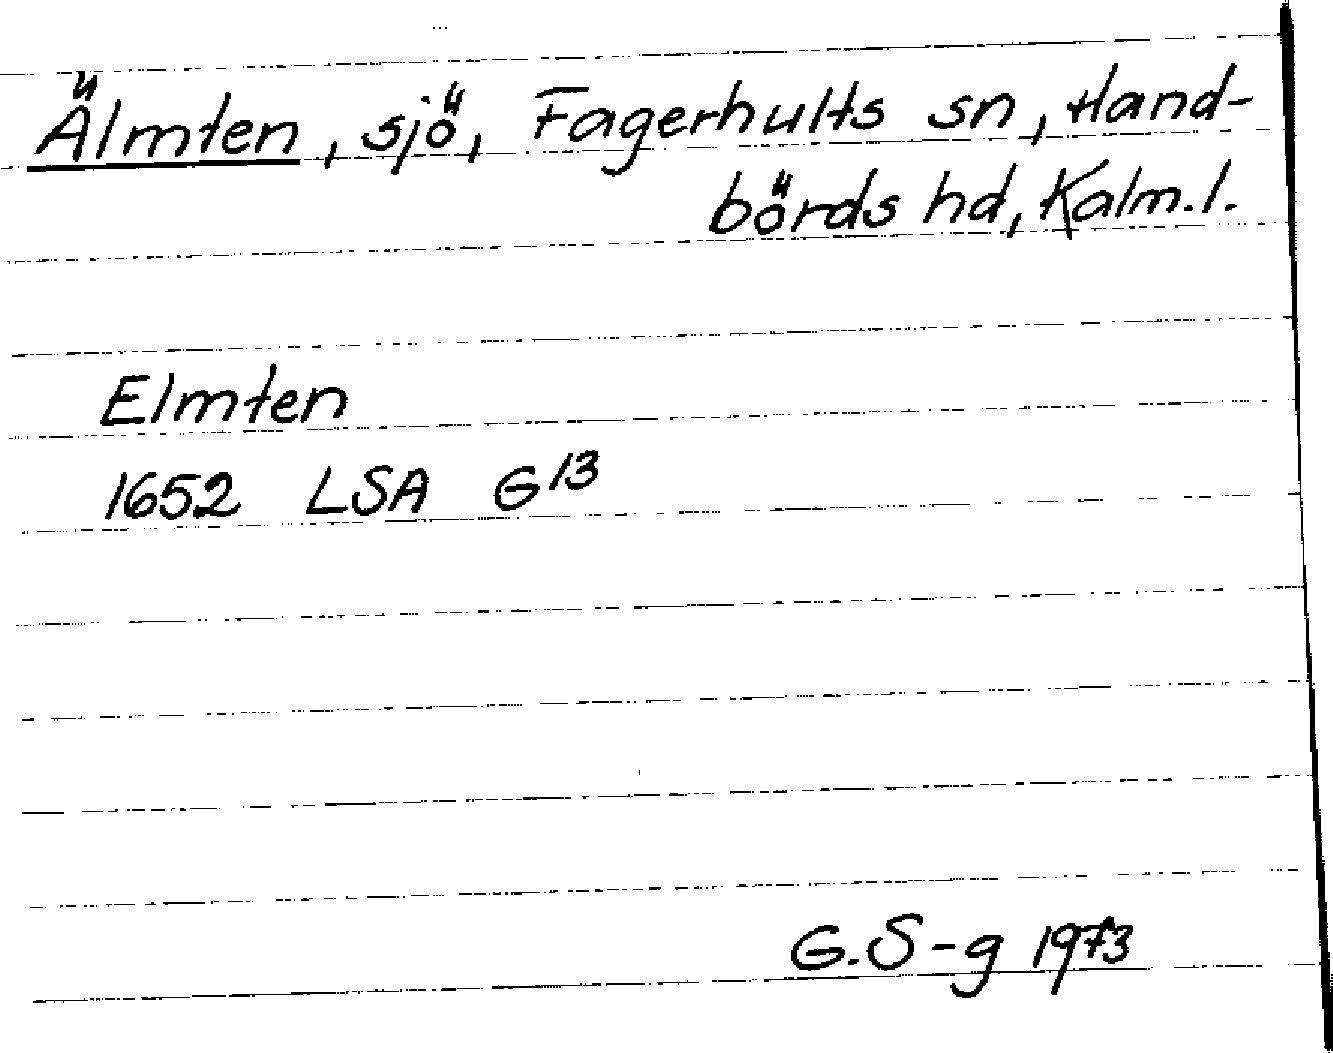 Älmten, sjö, Fagerhults sn, Hand-
börds hd, Kalm. l.
Elmten
1652 LSA G 13
G.S-g 1973